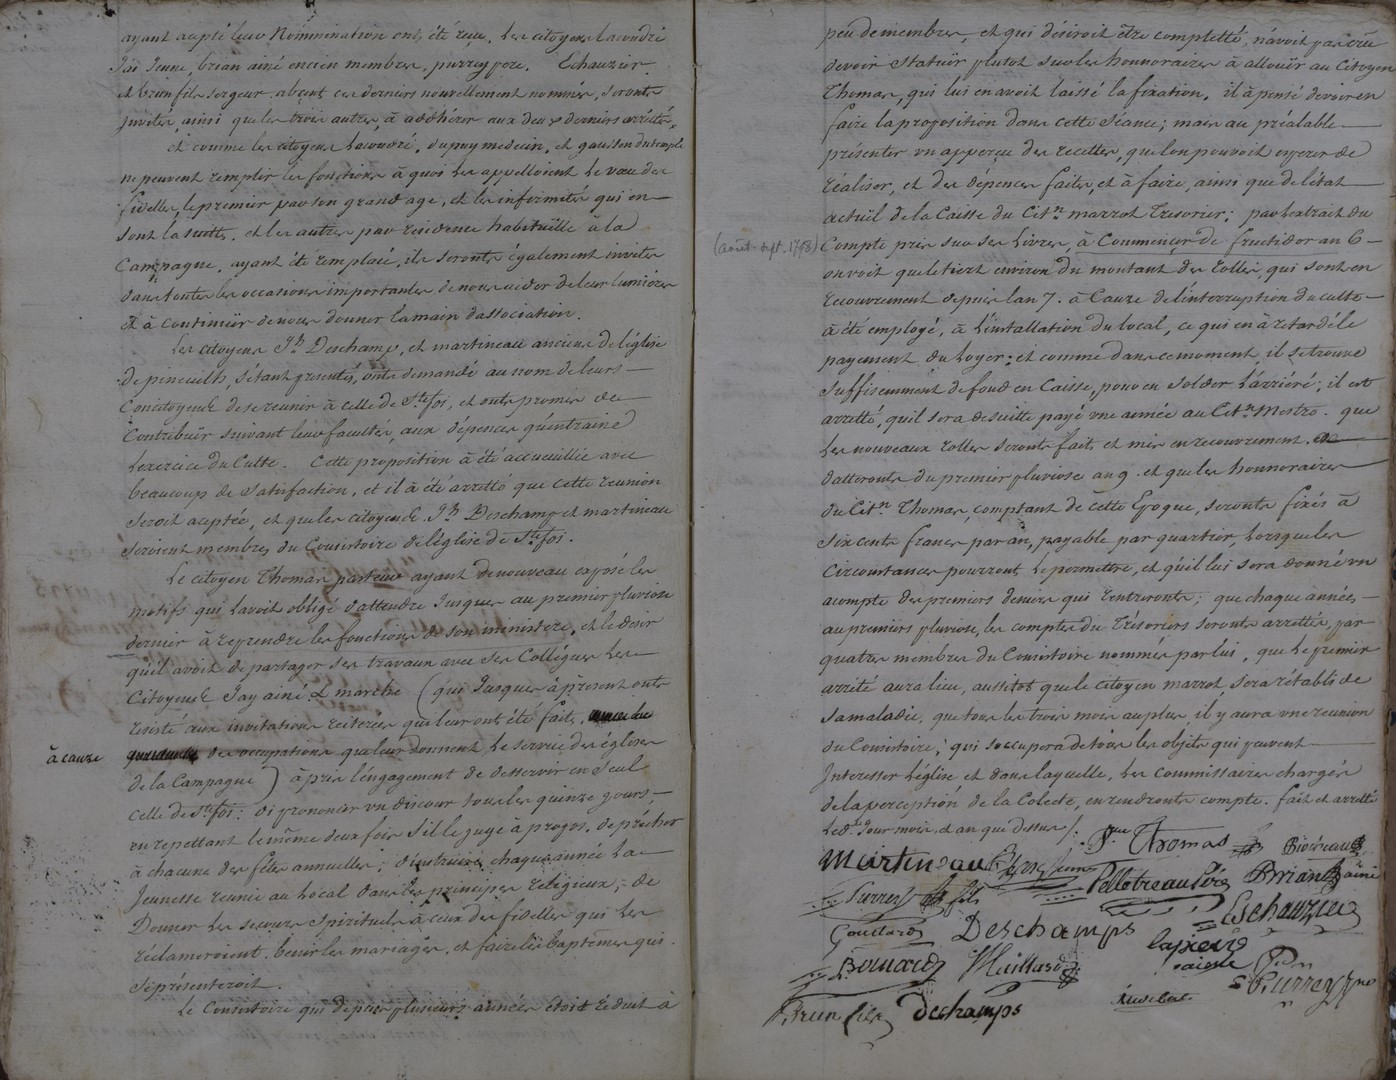 ayant acpté leur Nommination ont été reçu. Les citoyens Lacoudré
Jaï Jeune, brian ainé encien membres, purrey pere. Echauzier
et brun fils sergeur, absent ces derniers nouvellement nommés, seronts
Jnvités, ainsi que les trois autres, à adhérer aux deux derniers arrettés,
et comme les citoyens Lacoudré, dupuy medecin, et gausson du temple
ne peuvent remplir les fonctions à quoi les appelloient le vœu des
fidelles, le premier par son grand age, et les infirmités qui en
sont la suitte, et les autres par residence habituëlle à la
Campagne, ayant été remplacé, ils seronts également invités
dans toutes les occasions importantes de nous aider de leur lumières
et à continuër de nous donner la main dassociation.
Les citoyens Jh Deschamp, et martineau anciens de léglise
de pineuilh, sétant presentés, onts demandé au nom de leurs
Concitoyens de se reunir à celle de Ste foi, et onts promis de
Contribuër suivant leur facultés, aux dépences qu'entraine
Lexercice du Culte. Cette proposition à été accueuillie avec
beaucoup de satisfaction, et il à été arretté que cette reunion
seroit acptée, et que les citoyens Jh Deschamp et martineau
seroient membres du Consistoire de léglise de Ste foi.
Le citoyen Thomas pasteur ayant de nouveau exposé les
motifs qui lavoit obligé dattendre Jusques au premier pluviose
dernier à reprendre les fonctions de son ministère, et le desir
quil avoit de partager ses travaux avec ses Collégues les
Citoyens Jay ainé & marche (qui Jusques àprésent onts
résisté aux invitations reiterées que leur ont été faits,
à cauze des occupations que leur donnent le service des églises
de la Campagne) à pris léngagement de desservir en seul
celle de Ste foi: di prononcer un discour tous les quinze jours,
en repettant le même deux fois s'il le juge à propos, de précher
à chacune des fétes annuelles; d'instruire chaque année la
Jeunesse reunie au local dans les principes religieux; de
Donner les secours spirituels à ceux des fidelles qui les
réclameroient. benir les mariages, et faire les baptêmes qui
séprésenteroit.
Le Consistoire qui depuis plusieurs années étoit réduit à
peu de membres, et qui désiroit être completté, n'avoit pas crû
devoir statuër plutot sur les honnoraires à allouër au Citoyen
Thomas, qui lui en avoit laissé la fixation, il à pensé devoir en
faire la proposition dans cette séance; mais au préalable
présenter un apperçu des recettes, que lon pouvoit esperer de
réaliser, et des dépences faites, et à faire, ainsi que de létat
actuël de la Caisse du Citn marrot Tresorier; par Lextrait du
(août-sept. 1798) Compte pris sur ses Livres, à Commençer de fructidor an 6
on voit que le tiers environ du montant des rolles, qui sont en
recouvrement depuis lan 7. à Cauze de linterruption du culte
à été employé, à Linstallation du local, ce qui en à retardé le
payement du loyer; et comme dans ce moment, il se trouve
suffisenment de fond en Caisse, pour en solder Larriéré; il est
arretté, quil sera de suitte payé une année au Citn Mestre. que
Les nouveaux rolles seronts faits et mis en recouvrement.
datteronts du premier pluviose an 9. et que les honnoraires
du Citn Thomas, comptant de cette Epoque, seronts fixés à
six cents francs par an, payable par quartier lorsque les
circonstances pourront Le permettre, et quil lui sera donné un
acompte des premiers deniers qui rentreronts; que chaque années
au premiers pluviose, les comptes du Trésoriers seronts arrettés, par
quatres membres du Consistoire nommés par lui, que Le premier
arrété aura lieu, aussitot que le citoyen marrot, sera rétabli de
sa maladie, que tous les trois mois au plus, il y aura une reunion
du Consistoire, qui s'occupera de tous les objets qui peuvent
Interesser Léglise et dans laquelle, Les Commissaires chargés
de la perception de la Colecte, en rendronts compte. fait et arretté
Led. Jour mois, et an que dessus /.
Martineau Pre Thomas Biotéreau
Purrey fils Pellotreau Pére Briand ainé
Goulard Deschamps Eschauzier
Bonnard Muillard lapierre ainée P. Purrey
Brun fils deschamps